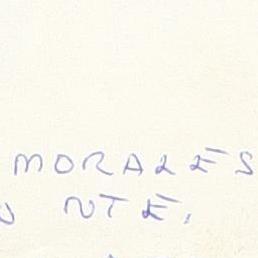 MORALES
NTE.